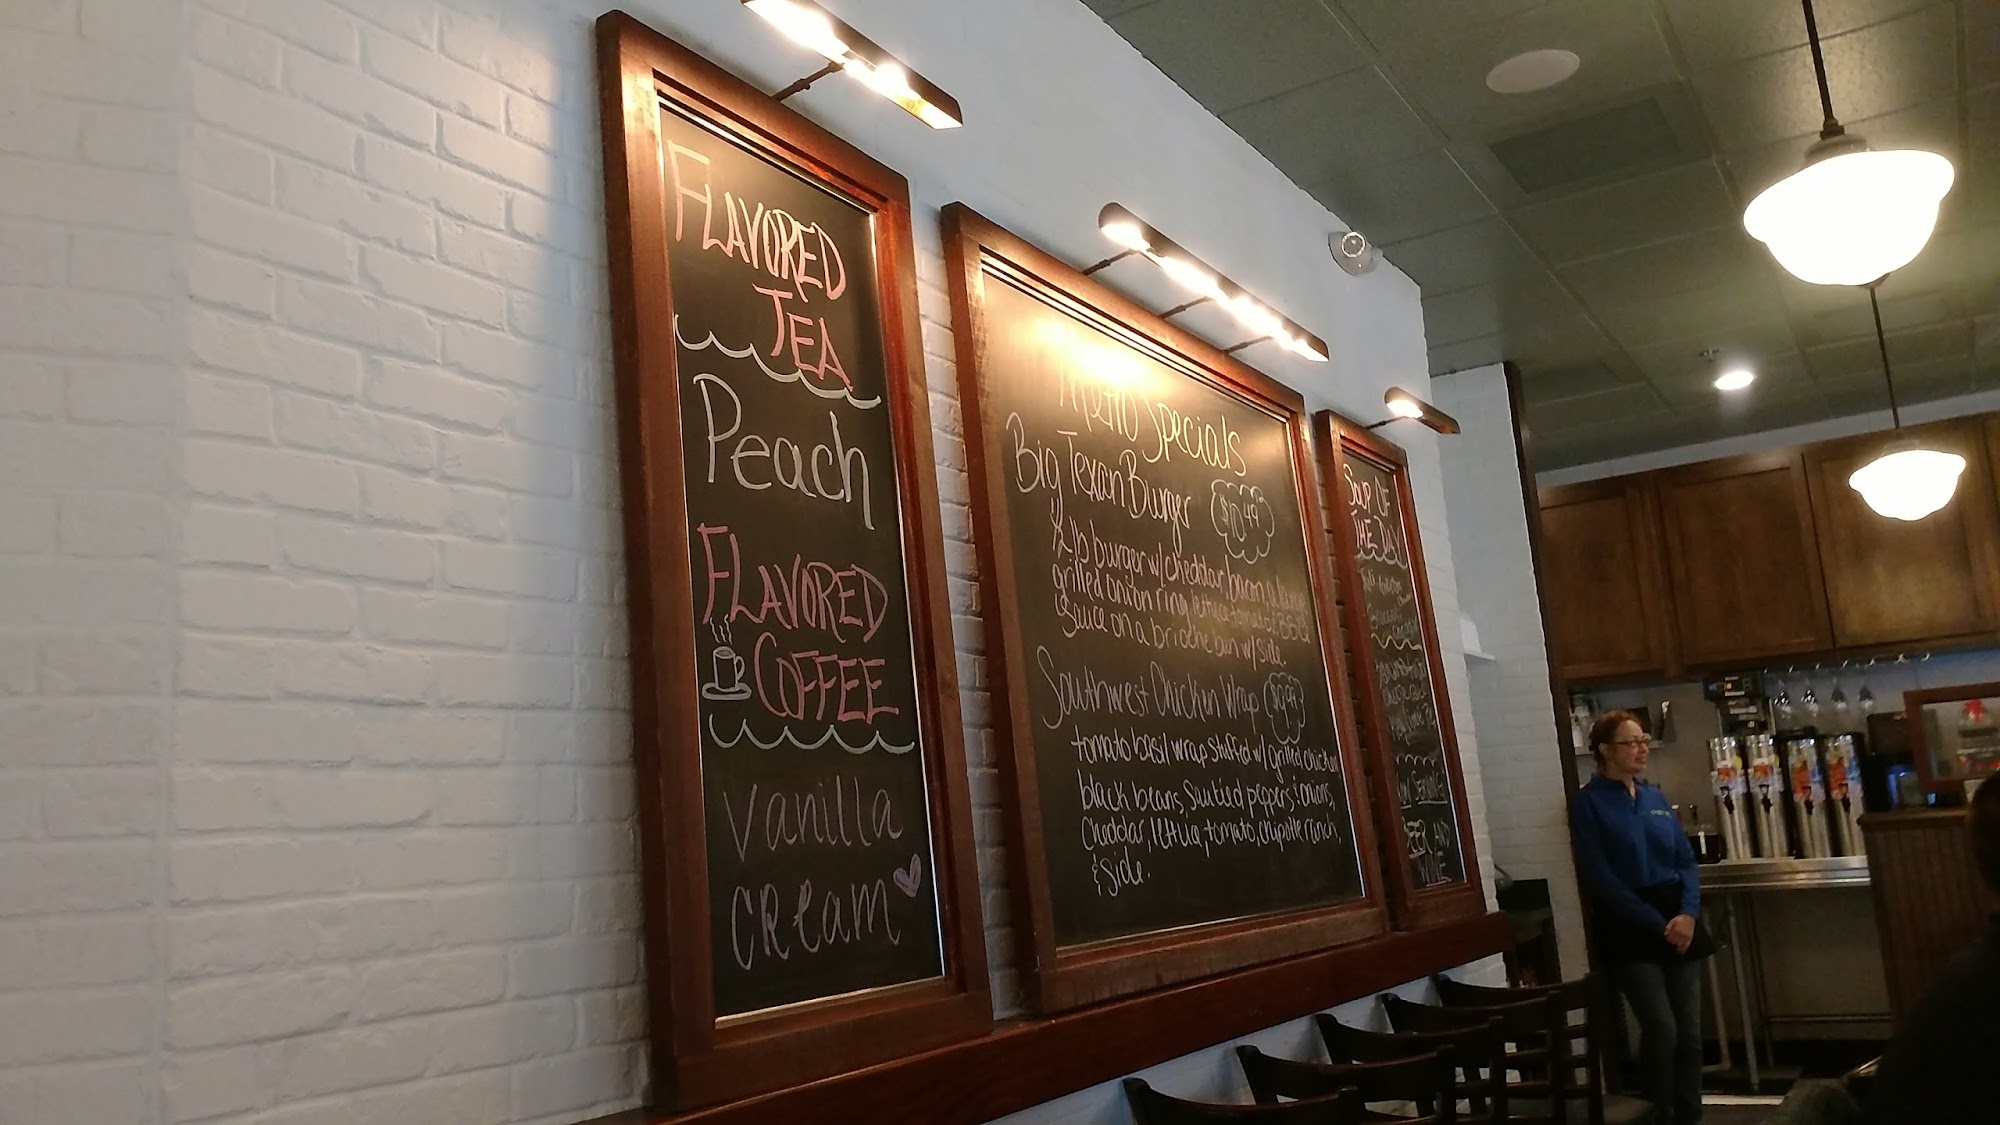 FLAVORED
TEA
Peach
FLAVORED
COFFEE
vanilla
cream
Menu Specials
Big Texan Burger $10.49
1/2 lb burger w/ cheddar, bacon, a large
grilled onion ring, lettuce, tomato & BBQ
sauce on a brioche bun w/ side.
Southwest Chicken Wrap $9.99
tomato basil wrap stuffed w/ grilled chicken
black beans, sautied peppers & onions,
cheddar, lettuce, tomato, chipotle ranch,
& side.
SOUP OF
THE DAY
NOW SERVING
BEER AND
WINE